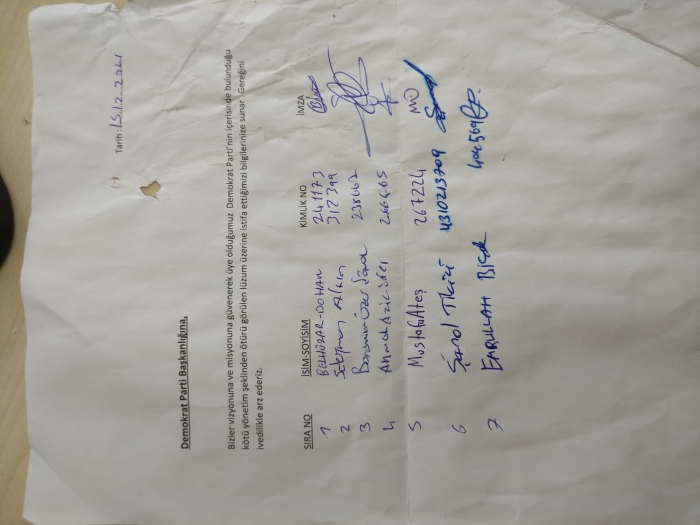 Tarih: 15.12.2021
Demokrat Parti Başkanlığına,
Bizler vizyonuna ve misyonuna güvenerek üye olduğumuz Demokrat Parti'nin içerisinde bulunduğu
kötü yönetim şeklinden ötürü görülen lüzum üzerine istifa ettiğimizi bilgilerinize sunar. Gereğini
ivedilikle arz ederiz.
SIRA NO İSİM-SOYİSİM KİMLİK NO İMZA
1 241173
2 312399
3 238662
4 Ahmet
5 Mustafa Ateş 267224
6 4310213709
7 BIÇAK 404569